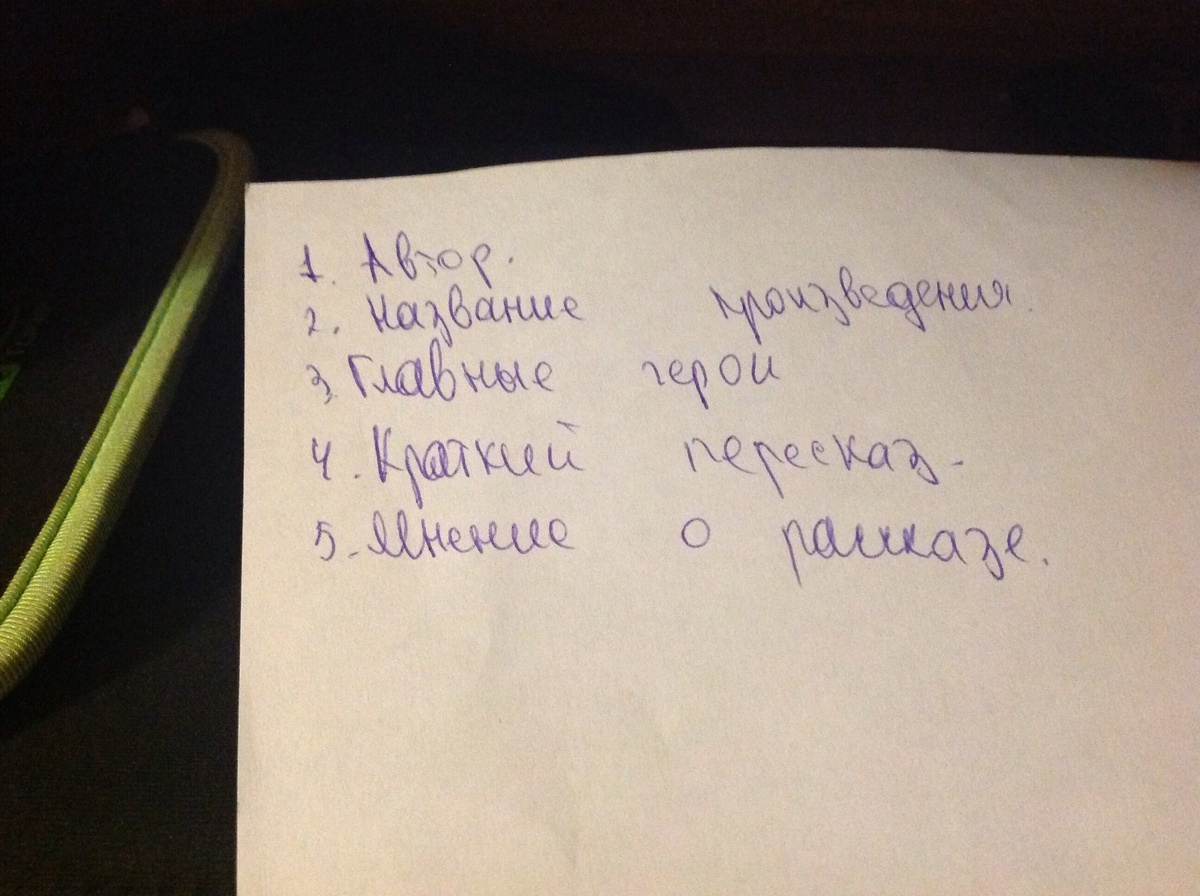 1. Автор.
2. Название произведения.
3. Главные герои
4. Краткий пересказ.
5. Мнение о рассказе.